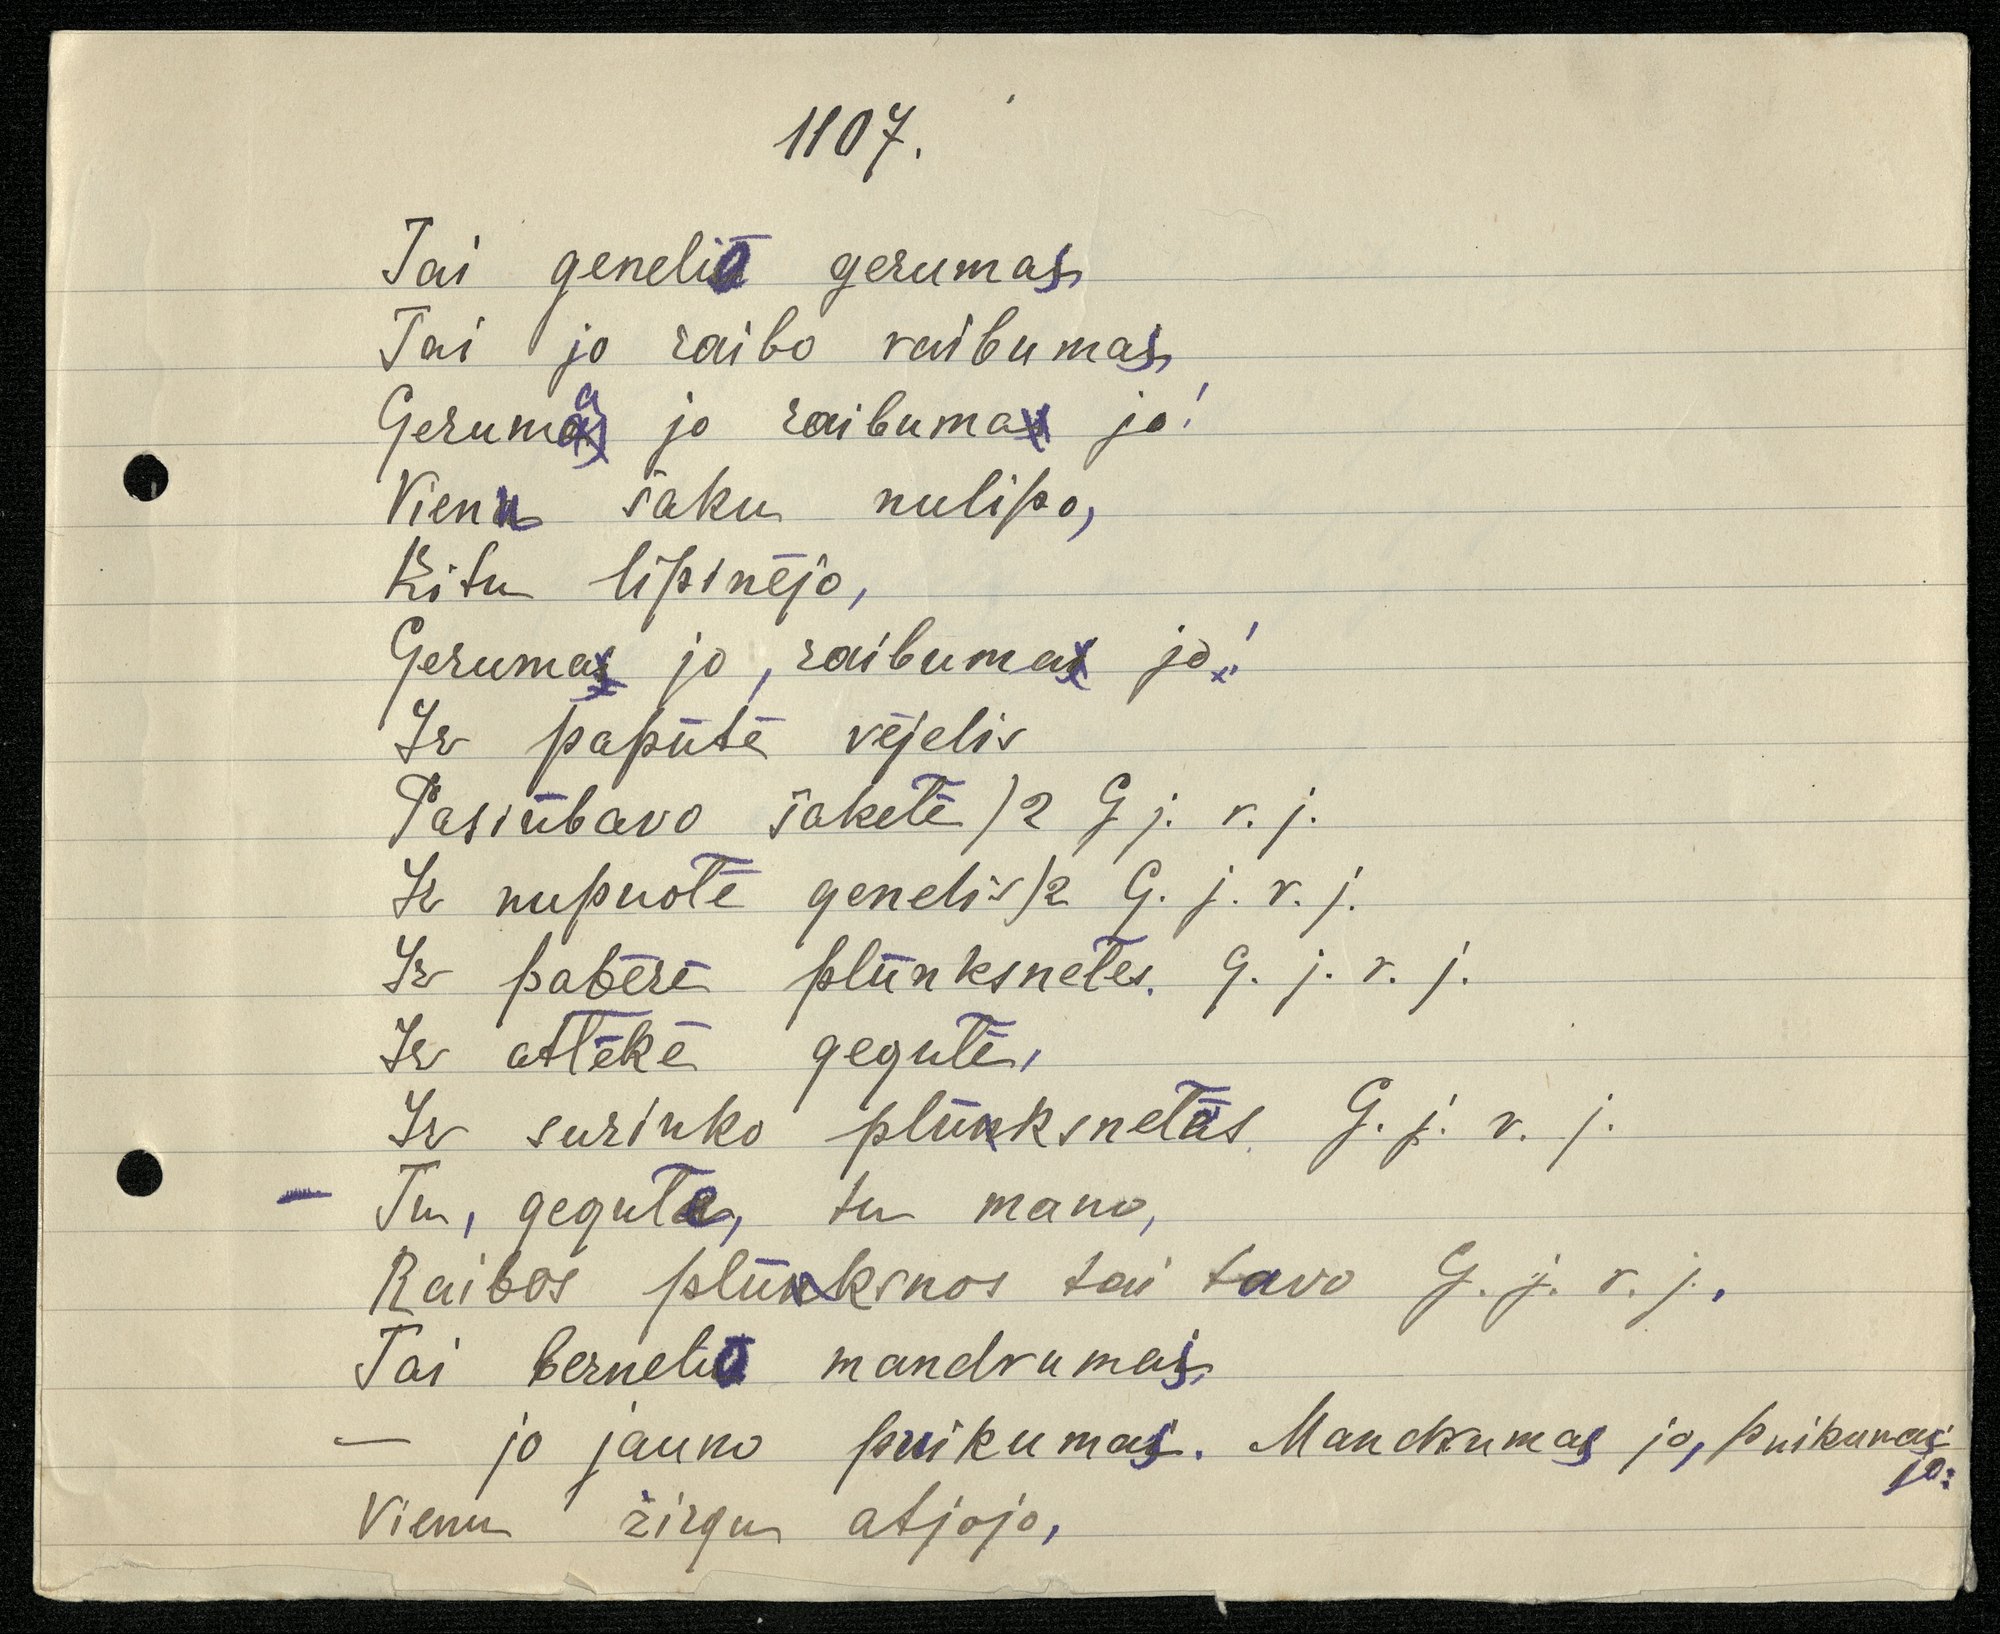 1107.
Tai genelio gerumas,
Tai jo raibo raibumas,
Geruma jo raibuma jo!
Vienu šaku nulipo,
Kitu lipinėjo,
Geruma jo, raibuma jo!
Ir papūtė vėjelis
Pasiūbavo šaketė )2 G j. r. j.
Ir nupuotė genelis )2 G. j. r. j.
Ir pabėrė plūnksnetes. G. j. r. j.
Ir atlėkė gegutė,
Ir surinko plūnksnetas. G. j. r. j.
– Tu, gegute, tu mano,
Raibos plūnksnos tai tavo G. j. r. j.,
Tai bernelio mandrumas,
— jo jauno puikumas. Mandrumas jo, puikumas
jo.
Vienu žirgu atjojo,